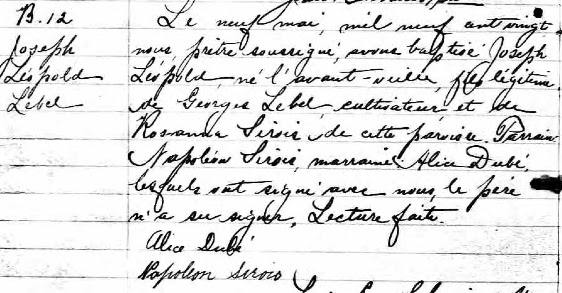 B. 12
Joseph
Léopold
Lebel
Le neuf mai, mil neuf cent vingt
nous prêtre soussigné, avons baptisé Joseph
Léopold, né l'avant-veille, fils légitime
de Georges Lebel, cultivateur, et de
Rosanna Sirois, de cette paroisse. Parrain
Napoléon Sirois, marraine Alice Dubé,
lesquels ont signé avec nous, le père
n'a su signer. Lecture faite.
Alice Dubé
Napoleon Sirois